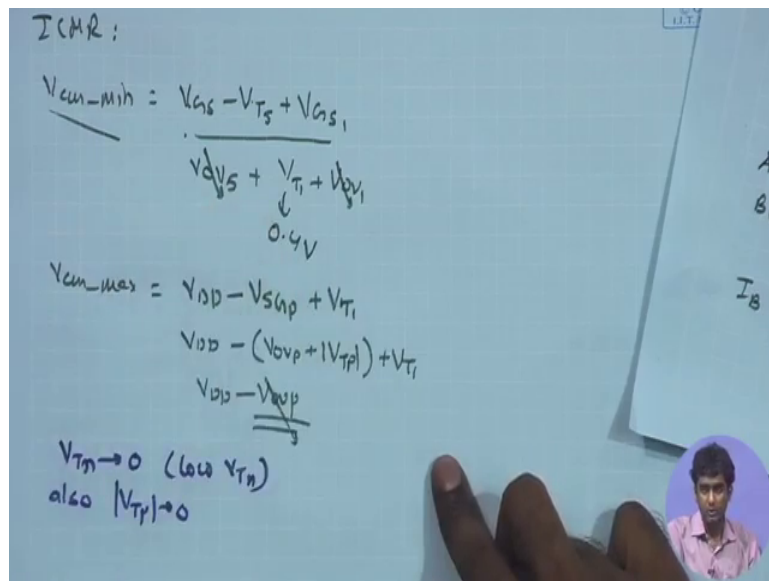 ICMR:
Vcm_min = VGS - VT5 + VGS1
Vov5 + VT1 + Vov1
↓
0.4V
Vcm_max = VDD - VSGP + VT1
VDD - (VovP + |VTP|) + VT1
VDD - VovP
VTn → 0 (low VTn)
also |VTP| → 0
I.I.T.
A
B
IB